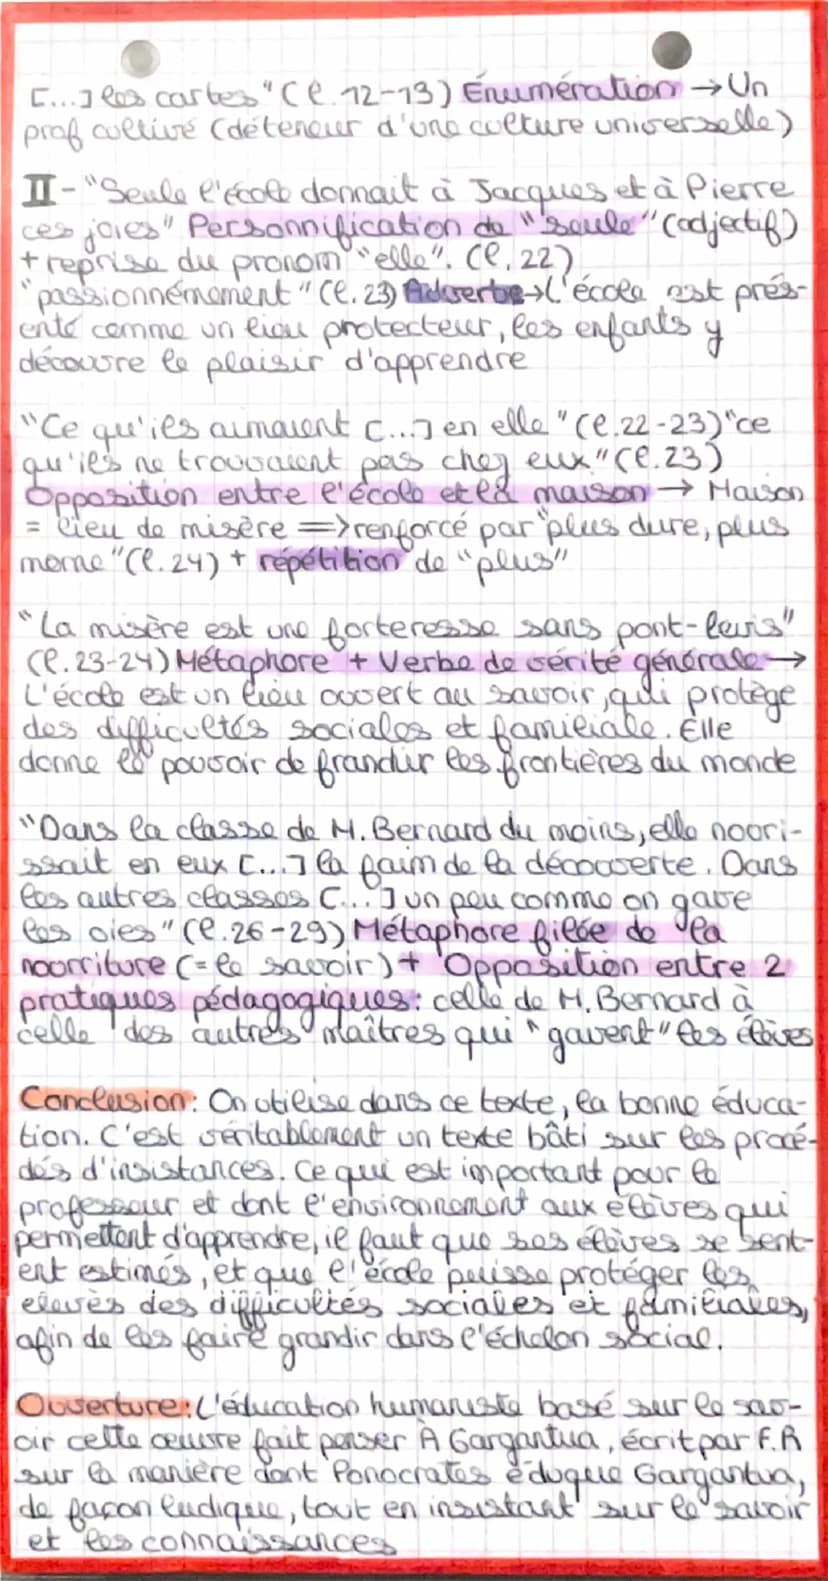 [...] les cartes" (l. 12-13) Énumération → Un
prof cultivé (déteneur d'une culture universelle)
II - "Seule l'école donnait à Jacques et à Pierre
ces joies" Personnification de "seule" (adjectif)
+ reprise du pronom "elle". (l. 22)
"passionnémement" (l. 23) Adverbe → L'école est prés-
enté comme un lieu protecteur, les enfants y
découvre le plaisir d'apprendre
"Ce qu'ils aimaient [...] en elle" (l. 22-23) "ce
qu'ils ne trouvaient pas chez eux" (l. 23)
Opposition entre l'école et la maison → Maison
= lieu de misère => renforcé par "plus dure, plus
morne" (l. 24) + répétition de "plus"
"La misère est une forteresse sans pont-levis"
(l. 23-24) Métaphore + Verbe de vérité générale →
L'école est un lieu ouvert au savoir, qui protège
des difficultés sociales et familiale. Elle
donne le pouvoir de frandir les frontières du monde
"Dans la classe de M. Bernard du moins, elle nourri-
ssait en eux [...] la faim de la découverte. Dans
les autres classes [...] un peu comme on gave
les oies" (l. 26-29) Métaphore filée de la
nourriture (= le savoir) + Opposition entre 2
pratiques pédagogiques : celle de M. Bernard à
celle des autres maîtres qui "gavent" les élèves
Conclusion : On utilise dans ce texte, la bonne éduca-
tion. C'est véritablement un texte bâti sur les procé-
dés d'insistances. Ce qui est important pour le
professeur et dont l'environnement aux élèves qui
permettent d'apprendre, il faut que ses élèves se sent-
ent estimés, et que l'école puisse protéger les
elevès des difficultés sociales et familiales,
afin de les faire grandir dans l'échelon social.
Ouverture : L'éducation humaniste basé sur le sav-
oir cette œuvre fait penser À Gargantua, écrit par F.R
sur la manière dont Ponocrates éduque Gargantua,
de façon ludique, tout en insistant sur le savoir
et les connaissances